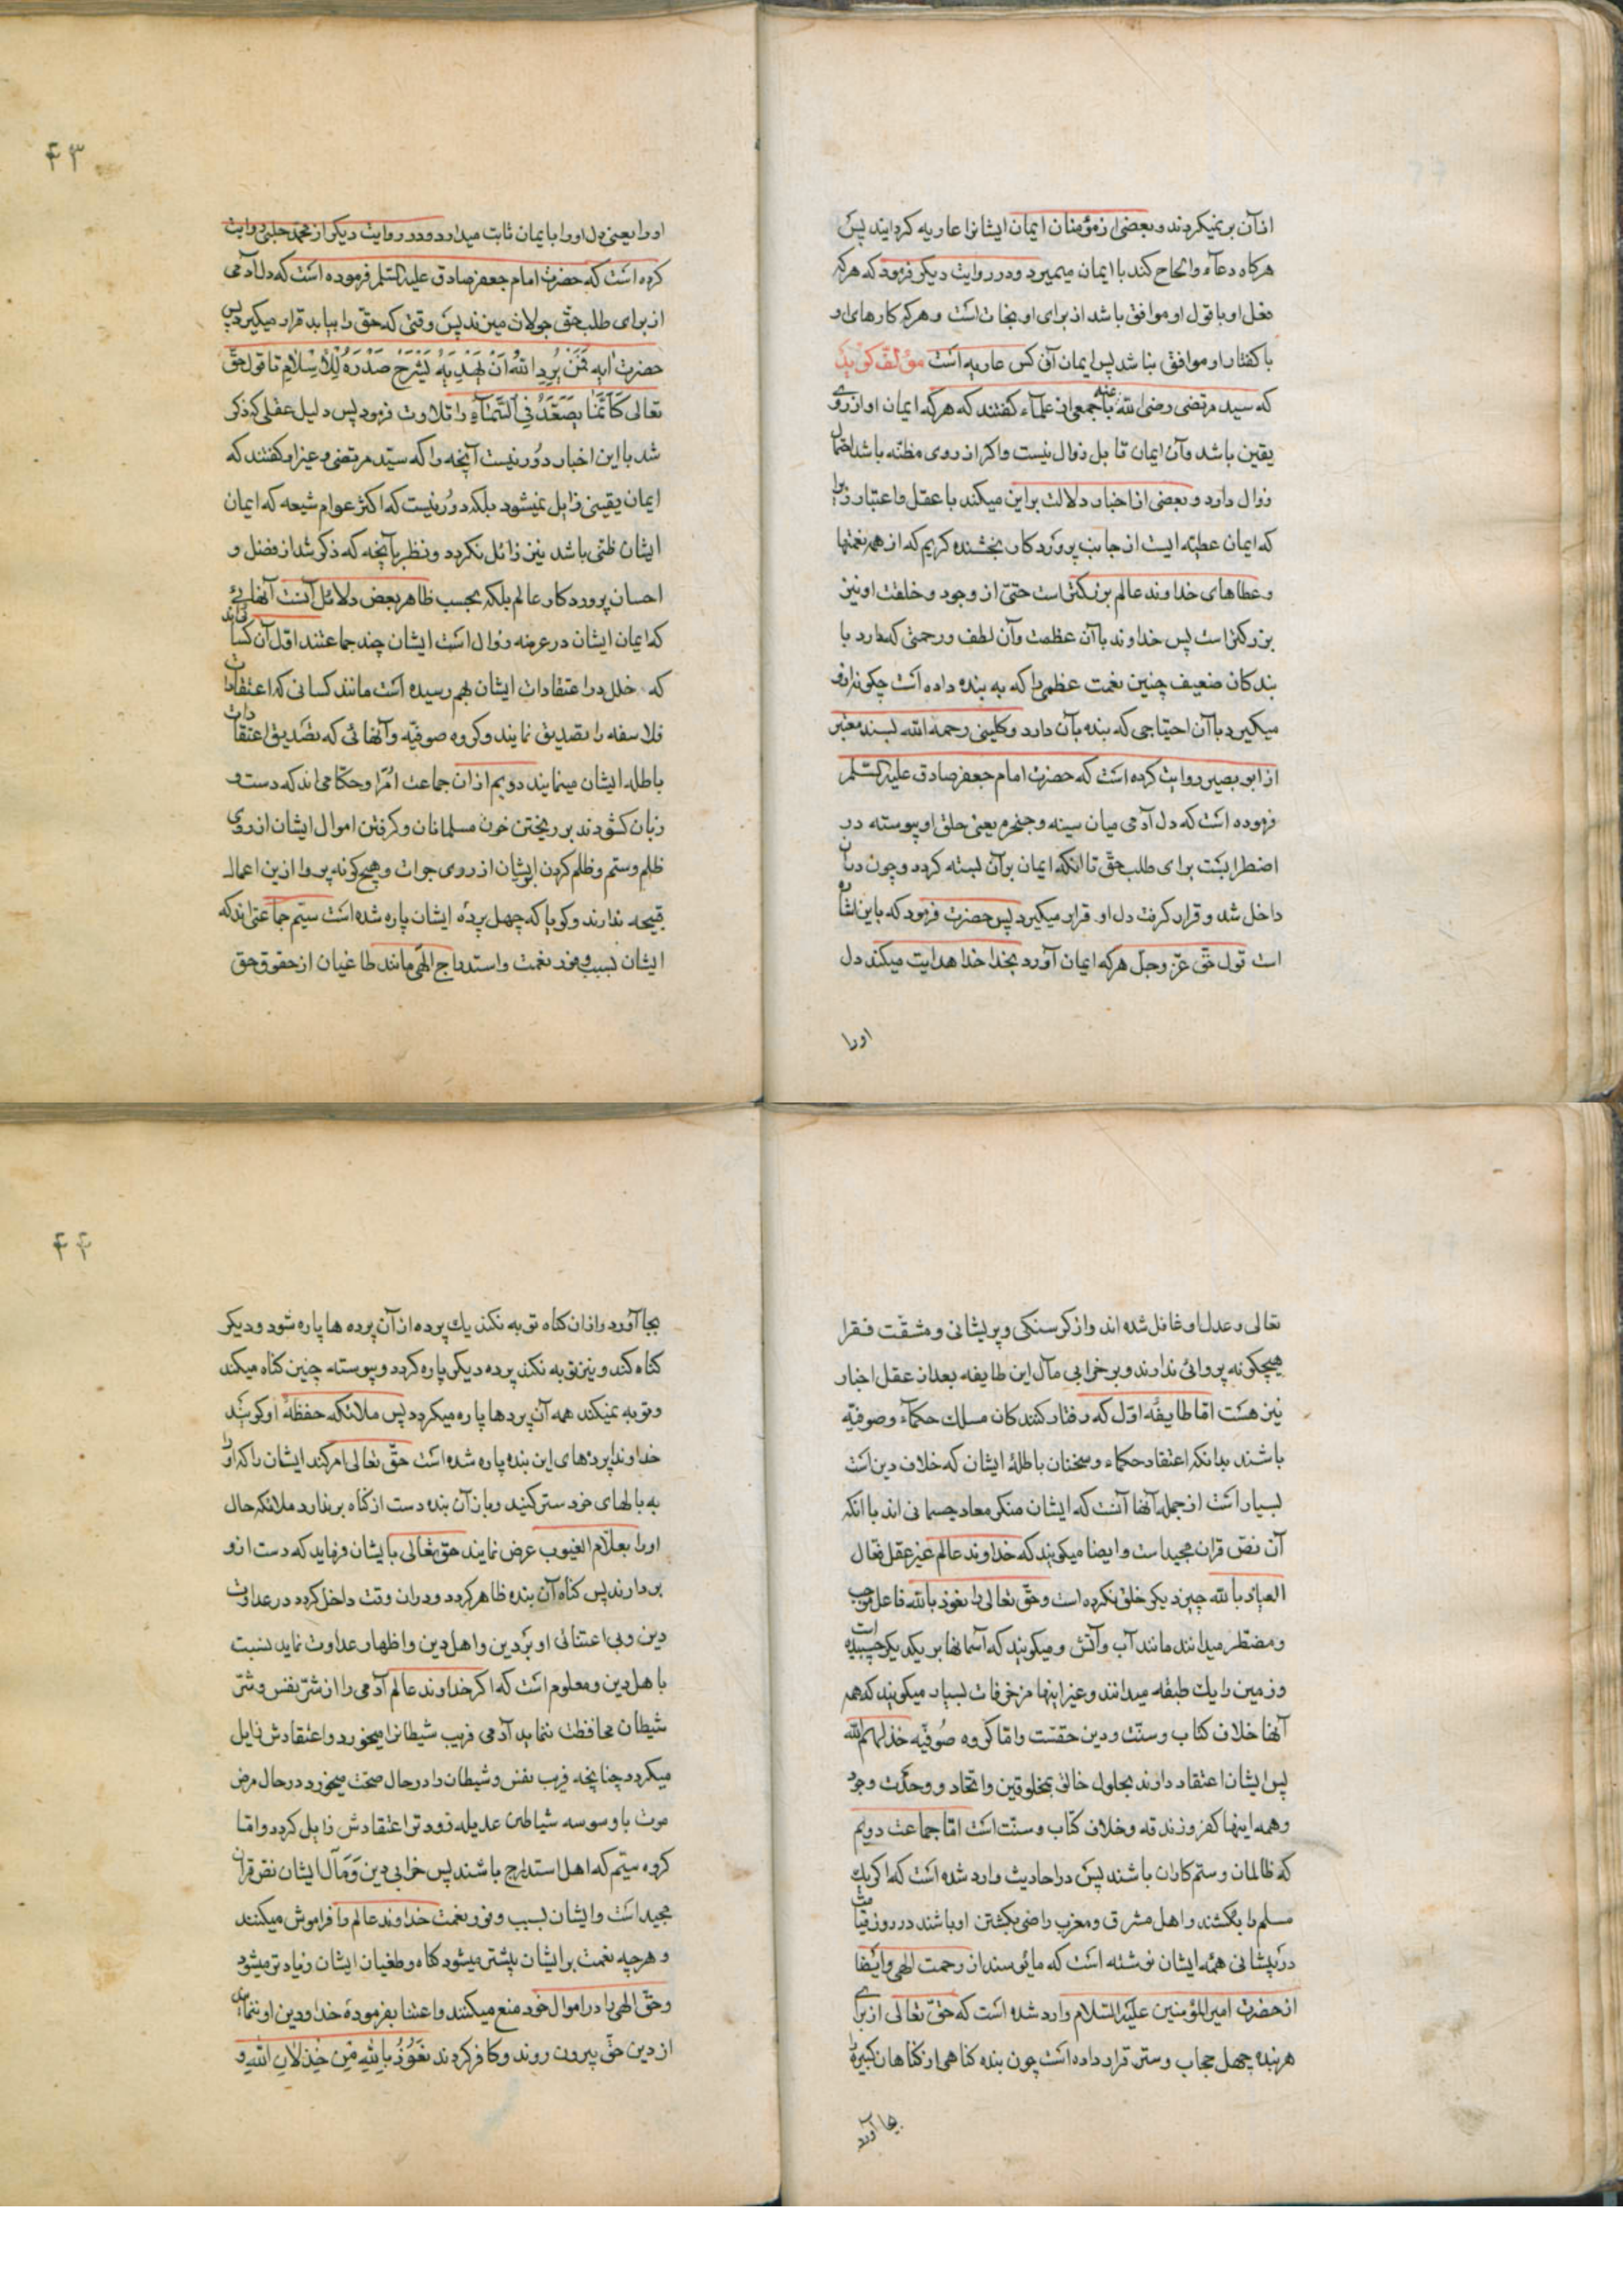 از آن بر نمیکردند و بعضی از مؤمنان ایمان ایشانرا عاریه کردایند پس
هرکاه دعاء و الحاح کند با ایمان میمیرد و در روایت دیکر فرمود که هرکه
فعل او با قول او موافق باشد از برای او نجات است و هرکه کارهای او
با کفتار او موافق نباشد پس ایمان آن کس عاریه است مؤلف کوید
که سید مرتضی رضی الله عنه با جمعی از علماء کفتند که هرکه ایمان او از روی
یقین باشد و آن ایمان قابل زوال نیست و اکر از روی مظنه باشد احتمال
زوال دارد و بعضی از اخبار دلالت بر این میکند با عقل و اعتبار زیرا
که ایمان عطیه ایست از جانب پروردکار بخشنده کریم که از همه نعمتها
و عطاهای خداوند عالم بزرکتر است حتی از وجود و خلقت او نیز
بزرکتر است پس خداوند با آن عظمت و آن لطف و رحمتی که دارد با
بندکان ضعیف چنین نعمت عظمی را که به بنده داده است چکونه از او
میکیرد با آن احتیاجی که بنده بآن دارد و کلینی رحمه الله بسند معتبر
از ابو بصیر روایت کرده است که حضرت امام جعفر صادق علیه السلم
فرموده است که دل آدمی میان سینه و حنجره یعنی حلق او پیوسته در
اضطرابست برای طلب حق تا انکه ایمان بر آن بسته کردد و چون در آن
داخل شد و قرار کرفت دل او قرار میکیرد پس حضرت فرمود که باین اشاره
است قول حق عز و جل هرکه ایمان آورد بخدا خدا هدایت میکند دل
اورا
۴۳
اورا یعنی دل اورا بایمان ثابت میدارد و در روایت دیکر از محمد حلبی روایت
کرده است که حضرت امام جعفر صادق علیه السلم فرموده است که دل آدمی
از برای طلب حق جولان میزند پس وقتی که حق را بیابد قرار میکیرد پس
حضرت آیه فَمَنْ یُرِدِ اللهُ اَنْ یَهْدِیَهُ یَشْرَحْ صَدْرَهُ لِلْاِسْلَامِ تا قول حق
تعالی کَاَنَّمَا یَصَّعَّدُ فِی السَّمَاءِ را تلاوت فرمود پس دلیل عقلی که ذکر
شد با این اخبار دور نیست آنچه را که سید مرتضی و غیر او کفتند که
ایمان یقینی زایل نمیشود بلکه دور نیست که اکثر عوام شیعه که ایمان
ایشان ظنی باشد نیز زائل نکردد و نظر بآنچه که ذکر شد از فضل و
احسان پروردکار عالم بلکه بحسب ظاهر بعض دلائل آنست آنهائی
که ایمان ایشان در عرضه زوال است ایشان چند جماعتند اول آن کسانی اند
که خلل در اعتقادات ایشان بهم رسیده است مانند کسانی که اعتقادات
فلاسفه را تصدیق نمایند و کروه صوفیه و آنهائی که تصدیق اعتقادات
باطله ایشان مینمایند دویم از ان جماعت امرا و حکامی اند که دست و
زبان کشودند بر ریختن خون مسلمانان و کرفتن اموال ایشان از روی
ظلم و ستم و ظلم کردن بر ایشان از روی جرات و هیچ کونه پروا از این اعمال
قبیحه ندارند و کویا که چهل پرده ایشان پاره شده است سیّم جماعتی اند که
ایشان بسبب وفور نعمت و استدراج الهی مانند طاغیان از حقوق حق
تعالی و عدل او غافل شده اند و از کرسنکی و پریشانی و مشقت فقرا
هیچکونه پروائی ندارند و بر خرابی مآل این طایفه بعد از عقل اخبار
نیز هست اما طایفه اول که رفتار کنندکان مسلک حکماء و صوفیه
باشند بدانکه اعتقاد حکماء و سخنان باطلهٔ ایشان که خلاف دین است
بسیار است از جمله آنها آنست که ایشان منکر معاد جسمانی اند با انکه
آن نص قران مجید است و ایضا میکویند که خداوند عالم غیر عقل فعال
العیاذ بالله چیز دیکر خلق نکرده است و حق تعالی را نعوذ بالله فاعل موجب
و مضطر میدانند مانند آب و آتش و میکویند که آسمانها بر یکدیکر چسبیده است
و زمین را یک طبقه میدانند و غیر اینها مزخرفات بسیار میکویند که همه
آنها خلاف کتاب و سنت و دین حقست و اما کروه صوفیه خذلهم الله
پس ایشان اعتقاد دارند بحلول خالق بمخلوقین و اتحاد و وحدت وجود
و همه اینها کفر و زندقه و خلاف کتاب و سنت است اما جماعت دویم
که ظالمان و ستمکاران باشند پس در احادیث وارد شده است که اکر یک
مسلم را بکشند و اهل مشرق و مغرب راضی بکشتن او باشند در روز قیامت
در پیشانی همهٔ ایشان نوشته است که مایوسند از رحمت الهی و ایضا
از حضرت امیر المؤمنین علیه السلام وارد شده است که حق تعالی از برای
هر بنده چهل حجاب و ستر قرار داده است چون بنده کناهی از کناهان کبیره را
بجا آورد
۴۴
بجا آورد و از ان کناه توبه نکند یک پرده از آن پرده ها پاره شود و دیکر
کناه کند و نیز توبه نکند پرده دیکر پاره کردد و پیوسته چنین کناه میکند
و توبه نمیکند همه آن پردها پاره میکردد پس ملائکه حفظهٔ او کویند
خداوندا پردهای این بنده پاره شده است حق تعالی امر کند ایشان را که او را
به بالهای خود ستر کنید و باز آن بنده دست از کناه بر ندارد ملائکه حال
اورا بعلام الغیوب عرض نمایند حق تعالی بایشان فرماید که دست از او
بردارند پس کناه آن بنده ظاهر کردد و دران وقت داخل کردد در عداوت
دین و بی اعتنائی او بر دین و اهل دین و اظهار عداوت نماید نسبت
باهل دین و معلوم است که اکر خداوند عالم آدمی را از شر نفس و شر
شیطان محافظت ننماید آدمی فریب شیطانرا میخورد و اعتقادش زایل
میکردد چنانچه فریب نفس و شیطان را در حال صحت میخورد در حال مرض
موت با وسوسه شیاطین عدیله زودتر اعتقادش زایل کردد و اما
کروه سیّم که اهل استدراج باشند پس خرابی دین و مآل ایشان نص قران
مجید است و ایشان بسبب وفور نعمت خداوند عالم را فراموش میکنند
و هرچه نعمت بر ایشان بیشتر میشود کاه و طغیان ایشان زیادتر میشود
و حق الهی را در اموال خود منع میکنند و اعتنا بفرمودهٔ خدا و دین او ننمایند
از دین حق بیرون روند و کافر کردند نَعُوذُ بِاللهِ مِنْ خِذْلَانِ اللهِ و